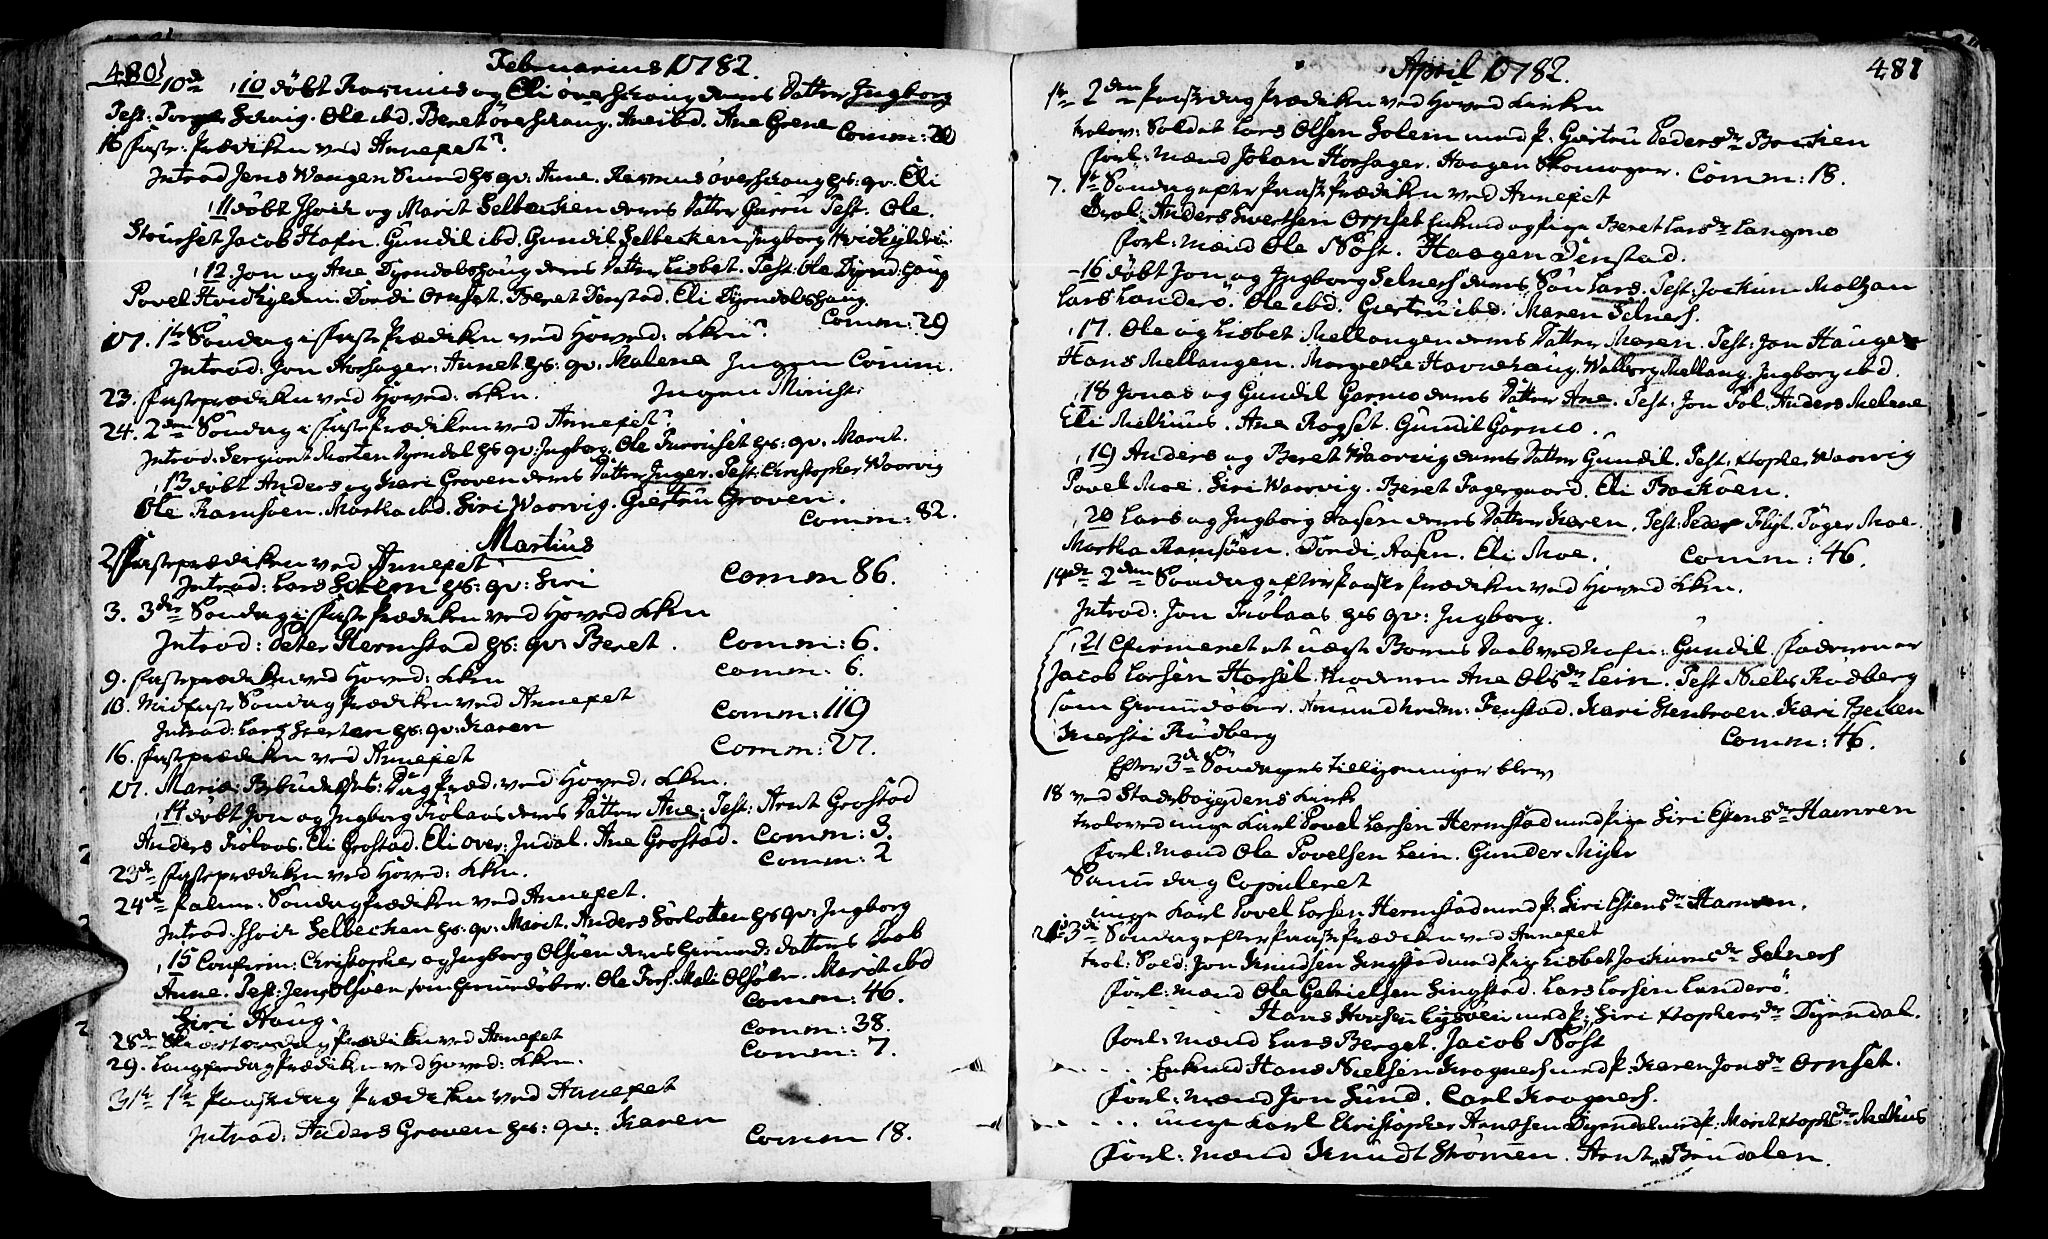 480 Februarius 1782.
10de ,10 döbt Rasmus og Eli överhoug deres Datter Ingborg
Test: Houg. Ole ibd. Beret överhoug. Ane ibd. Ane Grene Comm: 20
16 Faste: Prædiken ved Annexet.
Introd Jens Wangen Sund hs: qv: Anne. Rasmus överhoug hs: qv. Eli
,11 döbt og Marit Selbecken deres Datter Guru Test. Ole.
Stourset Jacob Hafn. Gundil ibd. Gundil Selbecken Ingborg Hvidkylden
,12. Jon og Ane Dyrndalshoug deres Datter Lisbet. Test: Ole Dyrnd: houg
Povel Hvidkylden. Dordi Ornset. Beret Denstad. Eli Dyrndalshoug.
Comm: 29
17. 1te Söndag i Faste Prædiken ved Hoved: Kken
Introd: Jon Korsager: Annet hs: qv. Malena Ingen Comm:
23. Fasteprædiken ved Hoved: Kken. Ingen Minist:
24. 2den Söndag i Faste Prædiken ved Annexet.
Introd: Sergiant Morten Dyrndal hs qv: Ingborg. Ole hs: qv. Marit.
,13 döbt Anders og Kari Groven deres Datter Inger. Test: Christopher Woorvig
Ole Ramsöen. Martha ibd. Siri Woorvig. Giertru Groven.
Comm: 82.
Martius
2 Fasteprædiken ved Annexet
Introd: Lars Solem hs: qv: Siri Comm 86.
3. 3die Söndag i Faste Prædiken ved Hoved Kken
Introd: Peter Hermstad hs: qv: Beret. Comm: 6.
9. Fasteprædiken ved Hoved: Kken Comm: 6.
10. Midfaste Söndag Prædiken ved Annexet
Introd: Lars hs: qv: Karen Comm: 119
16. Fasteprædiken ved Annexet Comm: 27.
17. Mariæ Bebudelses: Dag Præd: ved Hoved: Kken.
,14 döbt Jon og Ingborg Kiölaas deres Datter Ane. Test: Arnt Grostad
Anders Kiölaas. Eli Grostad. Eli over: Indal. Ane Grostad. Comm: 3.
23de Fasteprædiken ved Hoved: Kken. Comm: 2
24de Palme: Söndag Prædiken ved Annexet.
Introd: Selbecken hs: qv: Marit. Anders Sörlotten hs qv: Ingborg
,15 Confirm: Christopher og Ingborg Olsöen deres Datters Daab
Anne. Test: Jens Olsöen som döber. Ole Fors. Mali Olsöen. Marit ibd
Siri Haug. Comm: 46.
28de Skiertorsdag Prædiken ved Annexet Comm: 38.
29. Langfredag Prædiken ved Hoved: Kken. Comm: 7.
31te 1te Paaskedag Prædiken ved Annexet
Introd: Anders Groven hs: qv: Karen
Comm 18.
April 1782. 481
1te 2den Paaskedag Prædiken ved Hoved Kirken
trolov: Soldat Lars Olsen Solem med P: Giertru Pedersdr Becken
Forl: Mænd Johan Korsager. Haagen Skomager. Comm: 18.
7. 1te Söndag efter Paaske Prædiken ved Annexet
trol: Anders Sivertsen Ornset Enkmd og Pige Beret Larsdr Langmo
Forl: Mænd Ole Nöst. Haagen Denstad.
16 döbt Jon og Ingborg Selness deres Sön Lars. Test: Jockum Moltzau
Lars Landerö. Ole ibd. Giertru ibd. Maren Selness.
,17. Ole og Lisbet Mellangen deres Datter Maren. Test: Jon Haugen
Hans Mellangen. Margrethe Havnehaug. Walborg Mellang. Ingborg ibd.
,18 Jonas og Gundil Garmo deres Datter Ane. Test: Jon Fol. Anders Melene
Eli Melhuus. Ane Rogset. Gundil Garmo.
,19 Anders og Beret Woorvig deres Datter Gundil. Test: xtopher Woorvig
Povel Moe. Siri Woorvig. Beret Fagergaard. Eli.
,20 Lars og Ingborg Aasen deres Datter Karen. Test: Peder Flyt. Töger Moe.
Martha Ramsöen. Dordi Aasen. Eli Moe. Comm: 46.
14de 2den Söndag efter Paaske Prædiken ved Hoved Kken.
Introd: Jon Kiölaas hs qv: Ingborg.
,21 Cfirmeret et uægte Barns Daab ved Nafn: Gundil. Faderen er
Jacob Larsen Horsel. Moderen Ane Olsdr Lein. Test Niels Rödberg
som döber. Fenstad. Kari Stenbroen. Kari Becken
Kiersti Rödberg Comm: 46.
Efter 3de Söndagers Tillysninger blev
18 ved Stadsbøygdens Kirke
troloved unge Karl Povel Larsen Hermstad med Pige Siri Estensdr Hamren
Forl: Mænd Ole Povelsen Lein. Gunder Myhr
Samme dag Copuleret
unge Karl Povel Larsen Hermstad med P. Siri Estensdr Hamren.
21 3de Söndag efter Paaske Prædiken ved Annexet
trol: Sold: Jon Knudsen Singstad med Pige Lisbet Jockumsdr Selness
Forl: Mænd Ole Gabrielsen Singstad. Lars Larsen Landerö.
Hans Hansen med P: Siri xtophersdr Dyrndal.
Forl: Mænd Lars Berget. Jacob Nöst
. . . . Enkmd Hans Nielsen Krogness med P. Karen Jonsdr Ornset.
Forl: Mænd Jon Sund. Carl Krogness.
. . . . unge Karl Christopher Arntsen Dyrndal med P. Marit xtophdr Melhuus
Forl: Mænd Knudt Strömen. Arnt Brudalen.